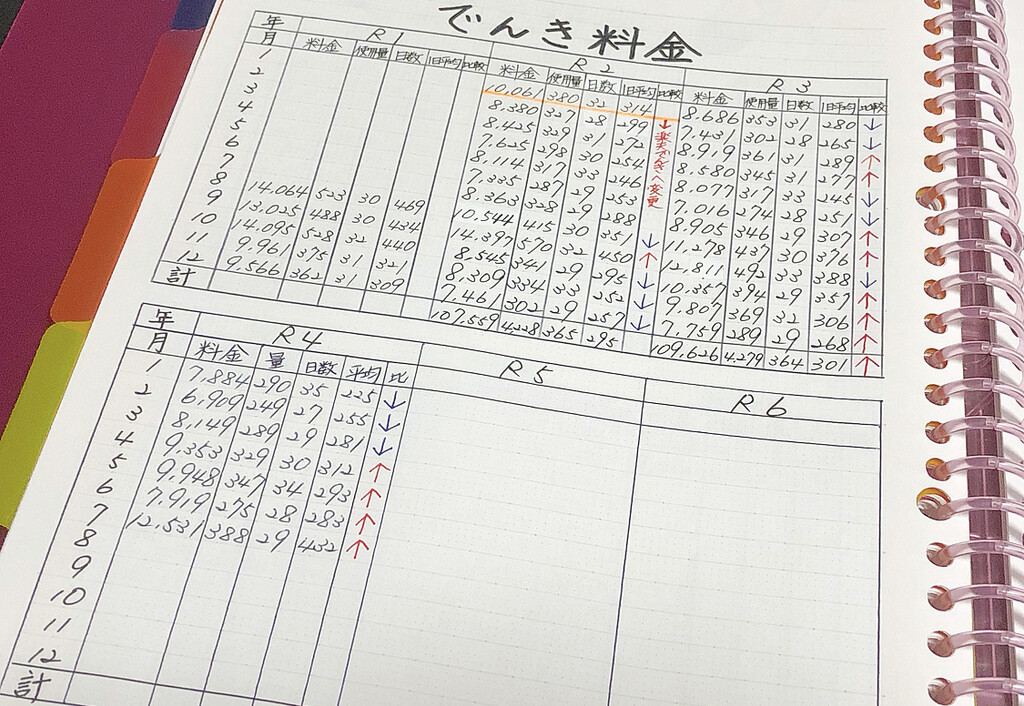 でんき料金
年 R1 R2 R3
月 料金 使用量 日数 1日平均 比較 料金 使用量 日数 1日平均 比較 料金 使用量 日数 1日平均 比較
1 10,061 380 32 314 8,686 353 31 280 ↓
2 8,380 327 28 299 ↓楽天でんきへ変更 7,431 302 28 265 ↓
3 8,425 329 31 272 8,919 361 31 289 ↑
4 7,625 298 30 254 8,580 345 31 277 ↑
5 8,114 317 33 246 8,077 317 33 245 ↓
6 7,335 287 29 253 7,016 274 28 251 ↓
7 8,363 328 29 288 8,905 346 29 307 ↑
8 14,064 523 30 469 10,544 415 30 351 ↓ 11,278 437 30 376 ↑
9 13,025 488 30 434 14,397 570 32 450 ↑ 12,811 492 33 388 ↓
10 14,095 528 32 440 8,545 341 29 295 ↓ 10,357 394 29 357 ↑
11 9,961 375 31 321 8,309 334 33 252 ↓ 9,807 369 32 306 ↑
12 9,566 362 31 309 7,461 302 29 257 ↓ 7,759 289 29 268 ↑
計 107,559 4,228 365 295 109,626 4,279 364 301 ↑
年 R4 R5 R6
月 料金 量 日数 平均 比
1 7,884 290 35 225 ↓
2 6,909 249 27 255 ↓
3 8,149 289 29 281 ↓
4 9,353 329 30 312 ↑
5 9,948 347 34 293 ↑
6 7,919 275 28 283 ↑
7 12,531 388 29 432 ↑
8
9
10
11
12
計